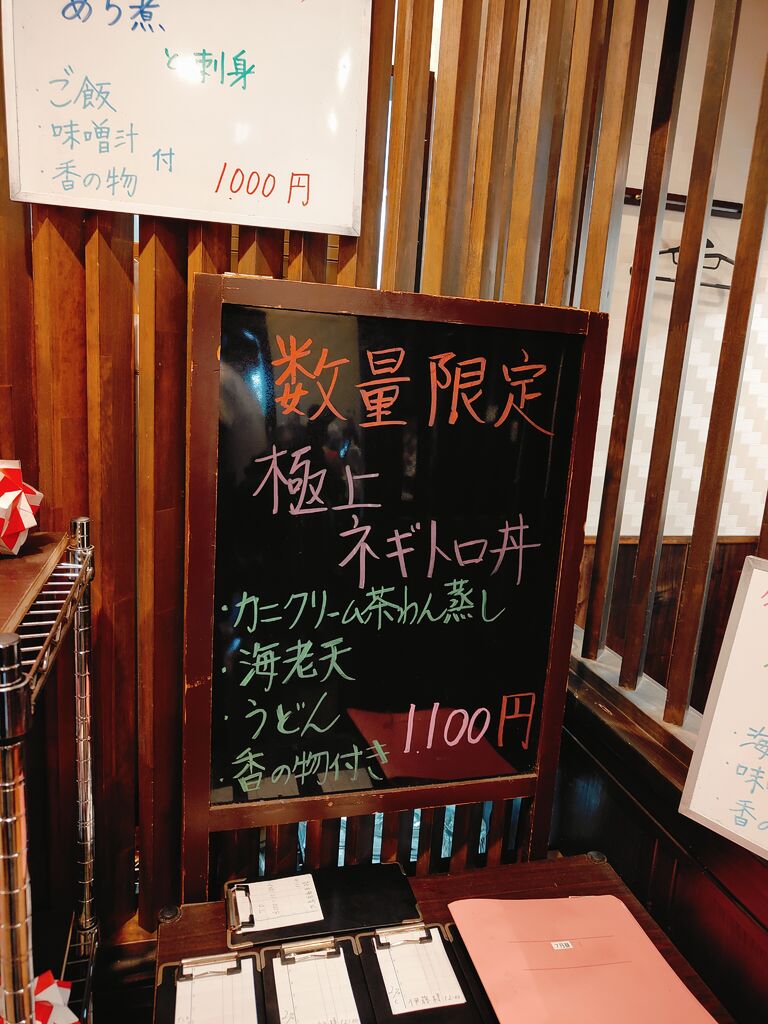 あら煮
と刺身
・ご飯
・味噌汁
・香の物
付
1000円
数量限定
極上
ネギトロ丼
・カニクリーム茶わん蒸し
・海老天
・うどん
・香の物付き
1100円
・海
・味
・香の